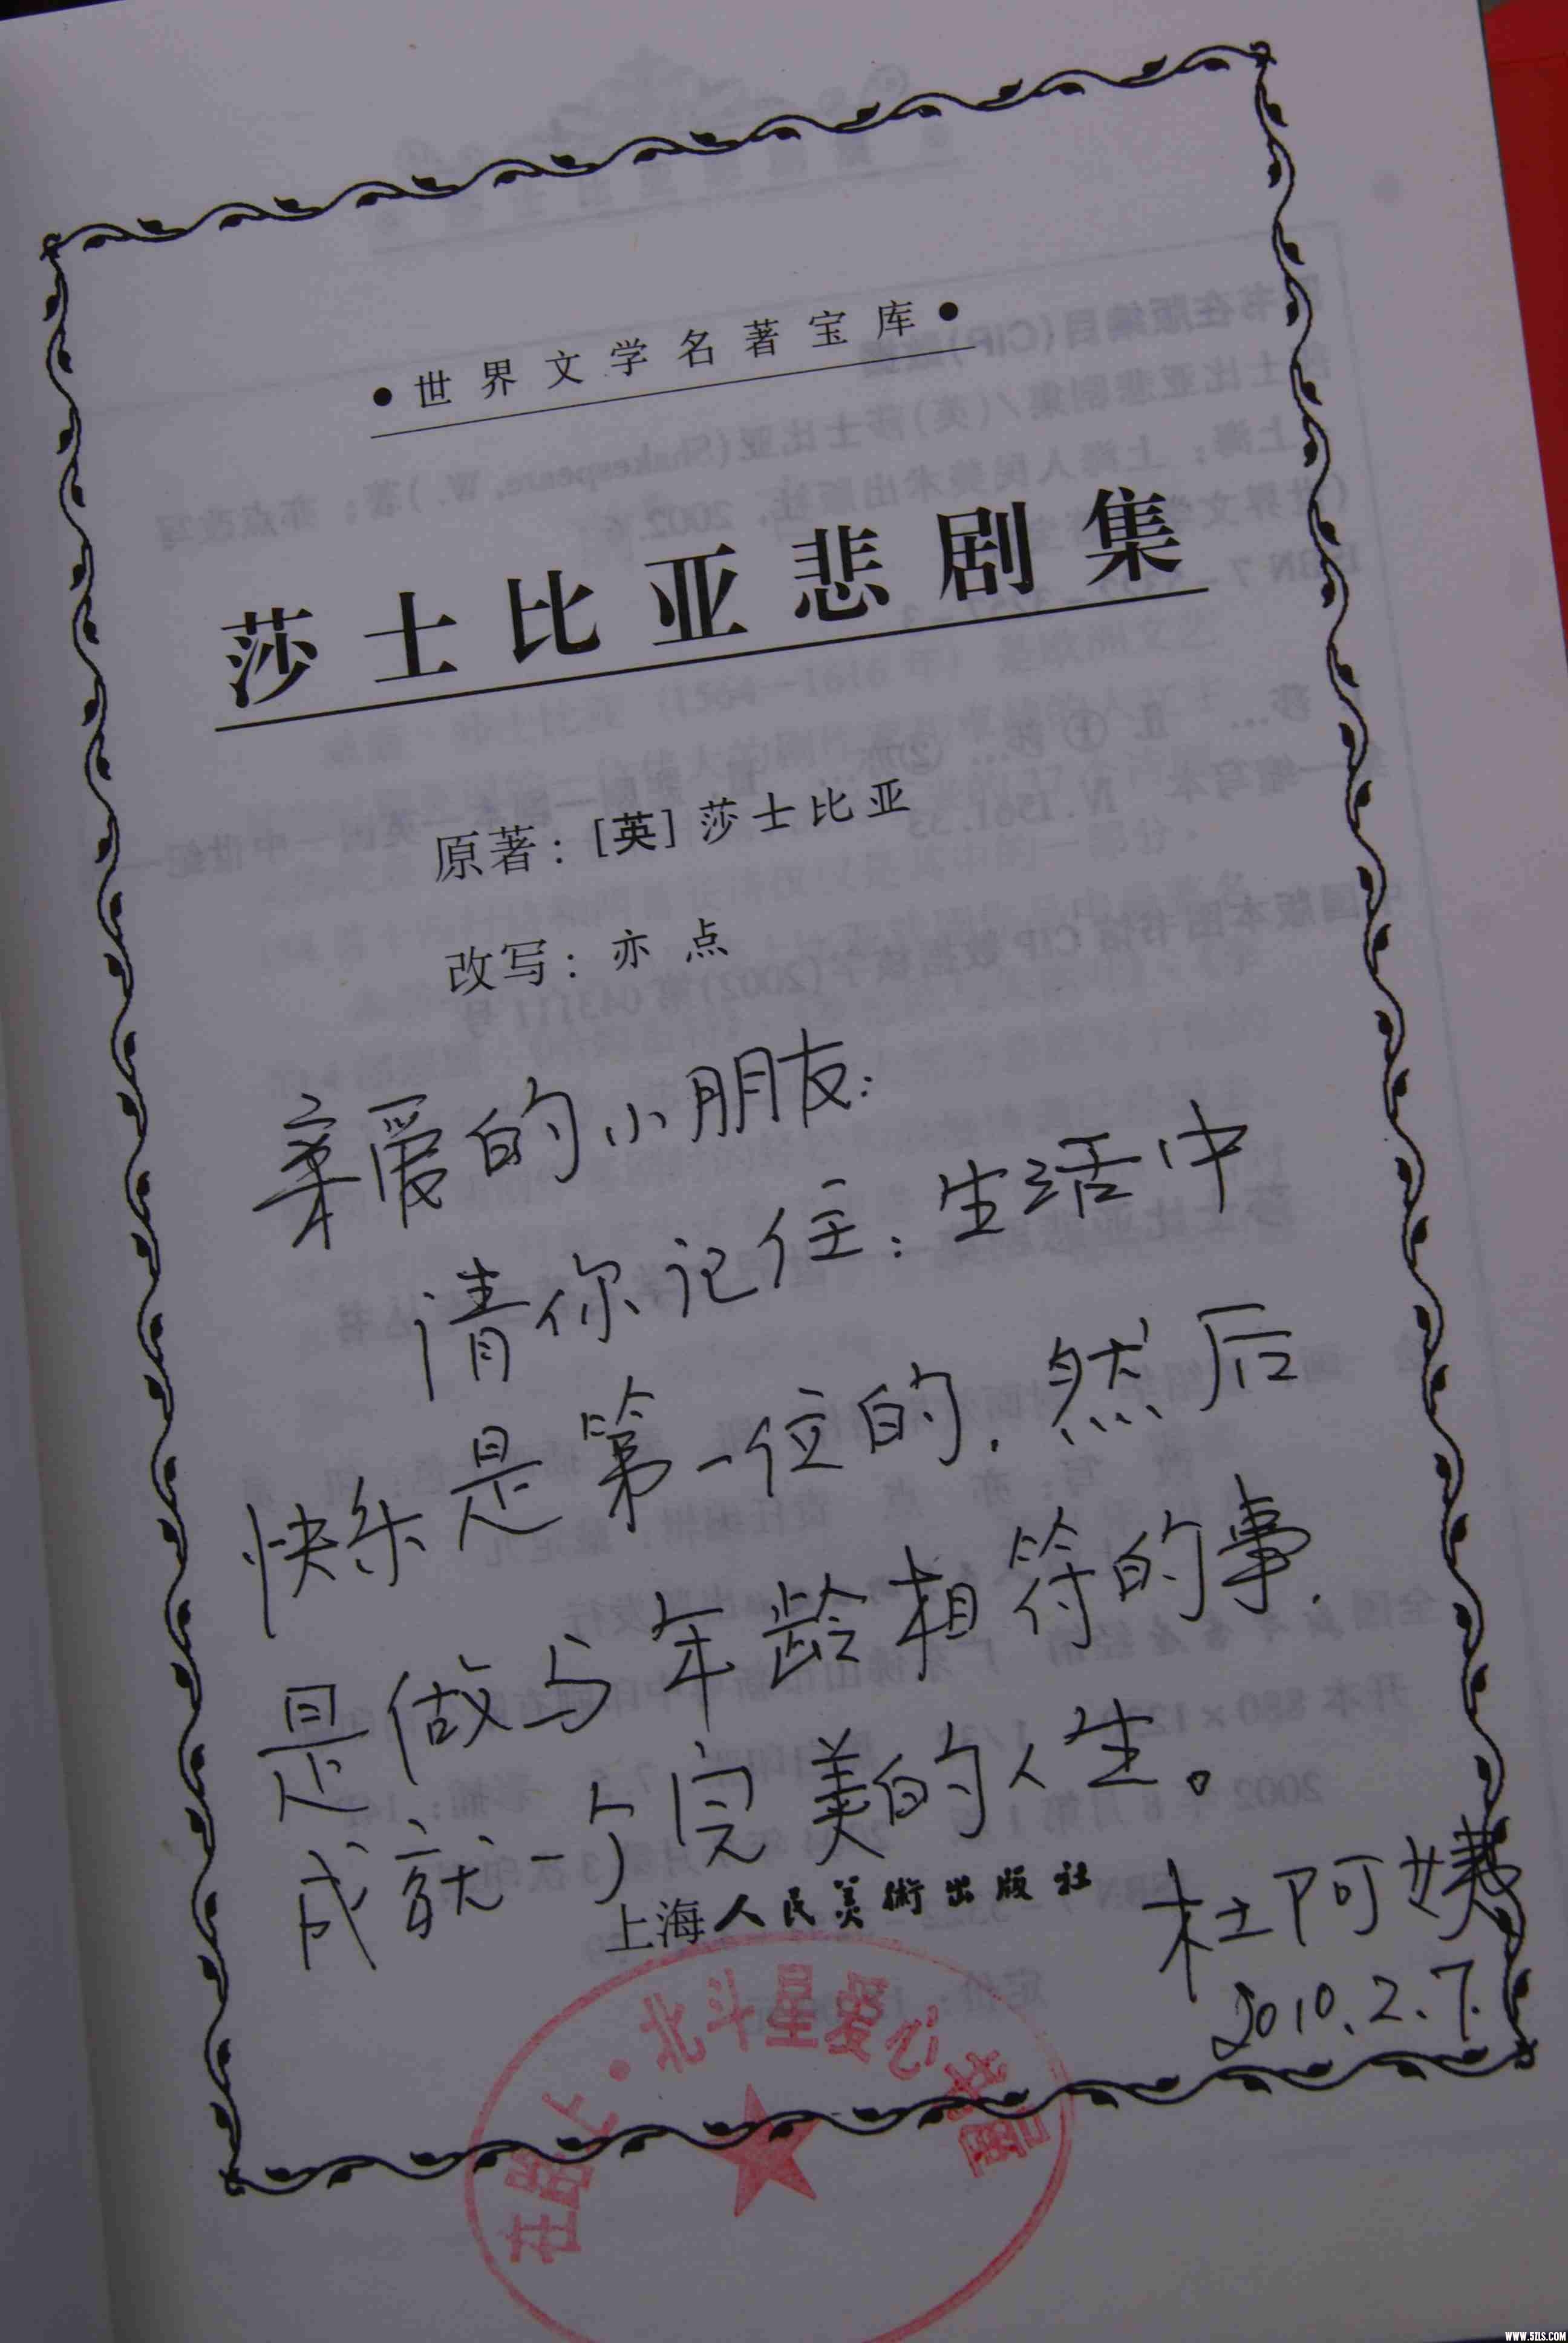 •世界文学名著宝库•
莎士比亚悲剧集
原著：[英]莎士比亚
改写：亦点
亲爱的小朋友：
请你记住：生活中
快乐是第一位的，然后
是做与年龄相符的事，
成就一个完美的人生。
上海人民美術出版社
杜阿姨
2010.2.7.
在路上·北斗星爱心书屋
WWW.52LS.COM